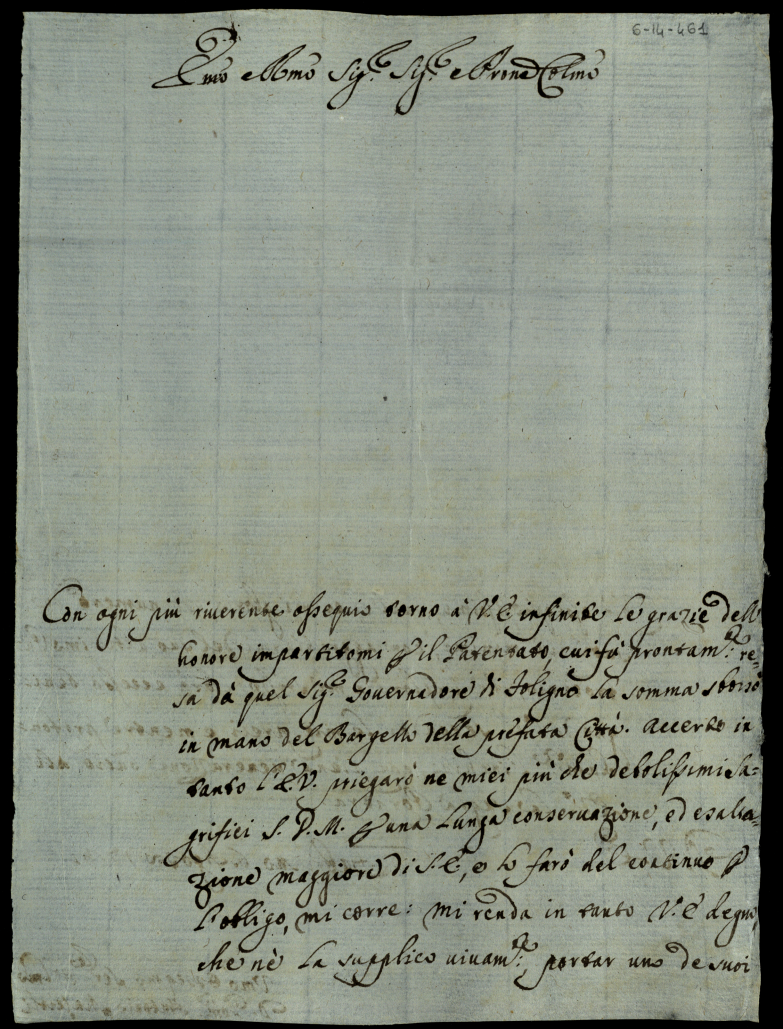 6-14-461
Emo e Rmo Sig.r Sig.r e Prone Colmo
Con ogni più riuerente ossequio torno à V.E. infinite le grazie dell'
honore impartitomi p il Patentato, cui fù prontam.te re-
sa dà quel Sig.r Gouernadore di Foligno la somma sborsò
in mano del Bargello della prefata Città. Accerto in
tanto l'E.V. priegarò ne miei più che debolissimi Sa=
grifici S. D. M. p una lunga conseruazione, ed esalta=
zione maggiore di S.E., e lo farò del continuo p
l'obligo, mi corre: mi renda in tanto V.E. degno,
che nè la supplico uiuam.te, portar uno de suoi